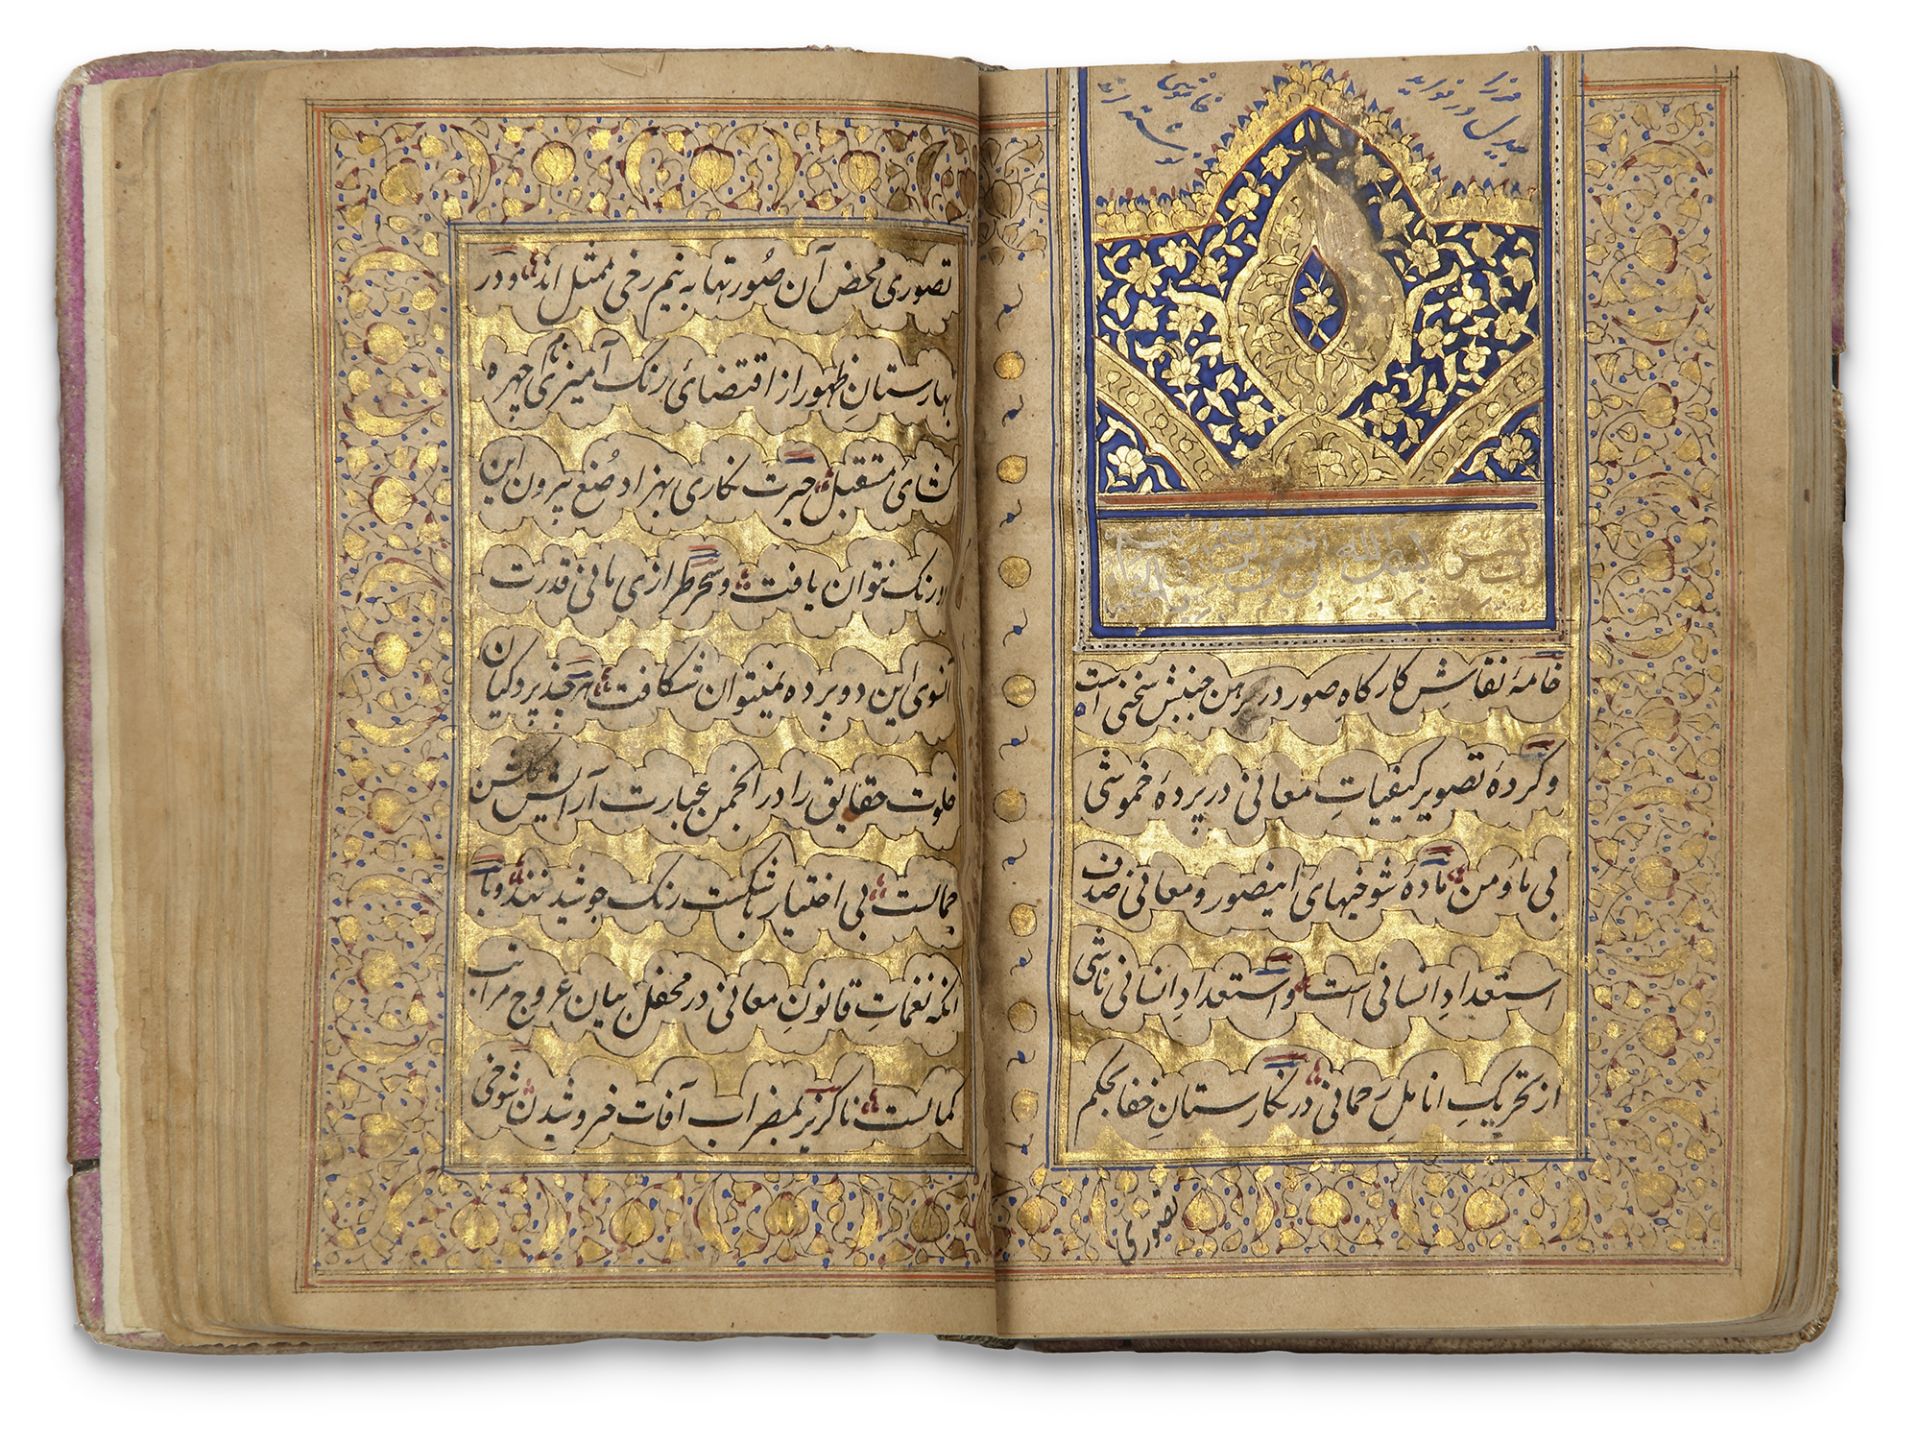 مرزا بیدل در فواید خاموشی نوشته اند
رب یسر بسم الله الرحمن الرحیم و تمم بالخیر
خامهٔ نقاشِ کارگاهِ صور در رهن جنبش سخنی است
و گردهٔ تصویر کیفیاتِ معانی در پردهٔ خموشی
بی ما و من مادهٔ شوخیهای اینصور و معانی صدف
استعدادِ انسانی است و استعدادِ انسانی ناشی
از تحریکِ اناملِ رحمانی در نگارستانِ خفا بحکم
تصوری
تصوری محض آن صورتها به نیم رخی ممثل اند و در
بهارستانِ ظهور از اقتضای رنگ آمیزی نام چهره
کشای مستقبل حیرت نگاری بهزاد صُنع بیرون این
دو رنگ نتوان یافت و سحر طرازی مانی قدرت
آنسوی این دو پرده نمیتوان شکافت هرچند پردگیان
خلوت حقایق را در انجمن عبارت آرایش گلشن
جمالست بی اختیار با شکست رنگ جوشیدنند و با
آنکه نغماتِ قانونِ معانی در محفل بیان عروج مراتب
کمالست ناگزیر بمضراب آفات خروشیدن شوخی